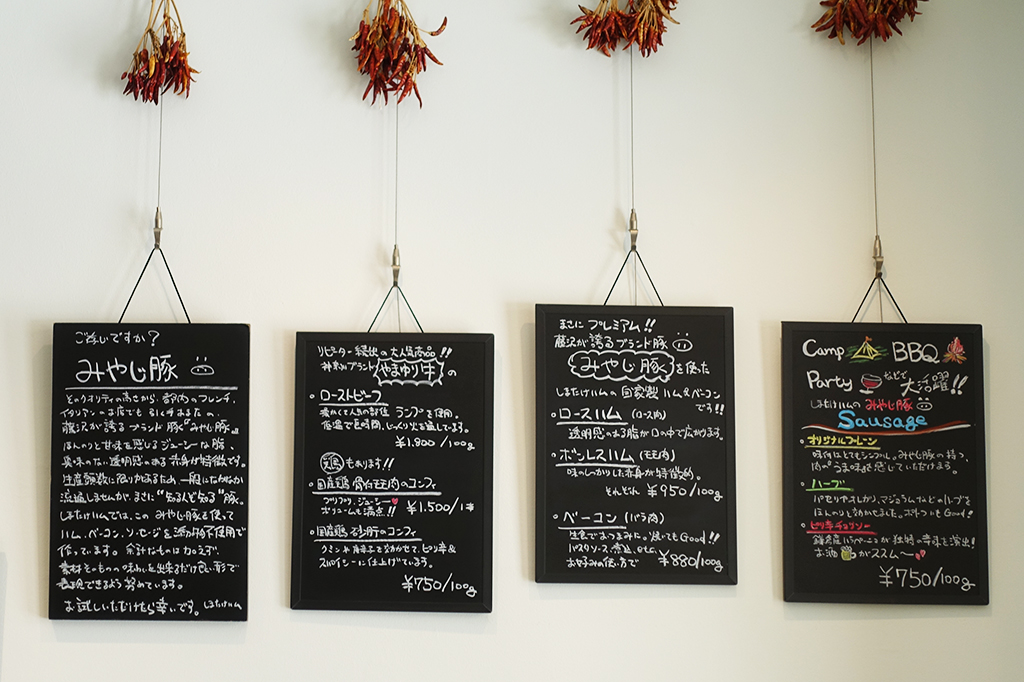 ご存じですか?
みやじ豚
そのクオリティの高さから、都内のフレンチ、
イタリアンのお店でも引く手あまたの、
藤沢が誇るブランド豚“みやじ豚”。
ほんのりと甘味を感じるジューシーな脂、
臭味のない透明感のある赤身が特徴です。
生産頭数に限りがあるため、一般になかなか
流通しませんが、まさに“知る人ぞ知る”豚。
しまたけハムでは、この みやじ豚を使って
ハム、ベーコン、ソーセージを添加物不使用で
作っています。余計なものは加えず、
素材そのものの味わいを出来るだけ良い形で
表現できるよう努めています。
お試しいただけたら幸いです。しまたけハム
リピーター続出の大人気商品!!
神奈川ブランド やまゆり牛 の
ローストビーフ
柔らかくて人気の部位 ランプを使用。
低温で長時間、じっくり火を通しています。
¥1,800/100g
鶏もあります!!
国産鶏 骨付モモ肉のコンフィ
プリプリ、ジューシー
ボリュームも満点!! ¥1,500/1本
国産鶏 砂肝のコンフィ
クミンや唐辛子を効かせて、ピリ辛&
スパイシーに仕上げています。
¥750/100g
まさに プレミアム!!
藤沢が誇るブランド豚
みやじ豚 を使った
しまたけハムの 自家製 ハム&ベーコン
です!!
ロースハム (ロース肉)
透明感のある脂が口の中で広がります。
ボンレスハム (モモ肉)
味のしっかりした赤身が特徴的。
それぞれ ¥950/100g
ベーコン (バラ肉)
生食でおつまみに。焼いてもGood!!
パスタソース、煮込、etc.
お好みの使い方で ¥880/100g
Camp BBQ
Party などで 大活躍!!
しまたけハムの みやじ豚
Sausage
オリジナルプレーン
味付はとてもシンプル。みやじ豚の持つ、
肉のうま味を感じていただけます。
ハーブ
パセリやオレガノ、マジョラムなどのハーブを
ほんのりと効かせました。ポトフにもGood!
ピリ辛チョリソー
鎌倉産ハラペーニョが独特の辛味を演出!
お酒がススム〜
¥750/100g